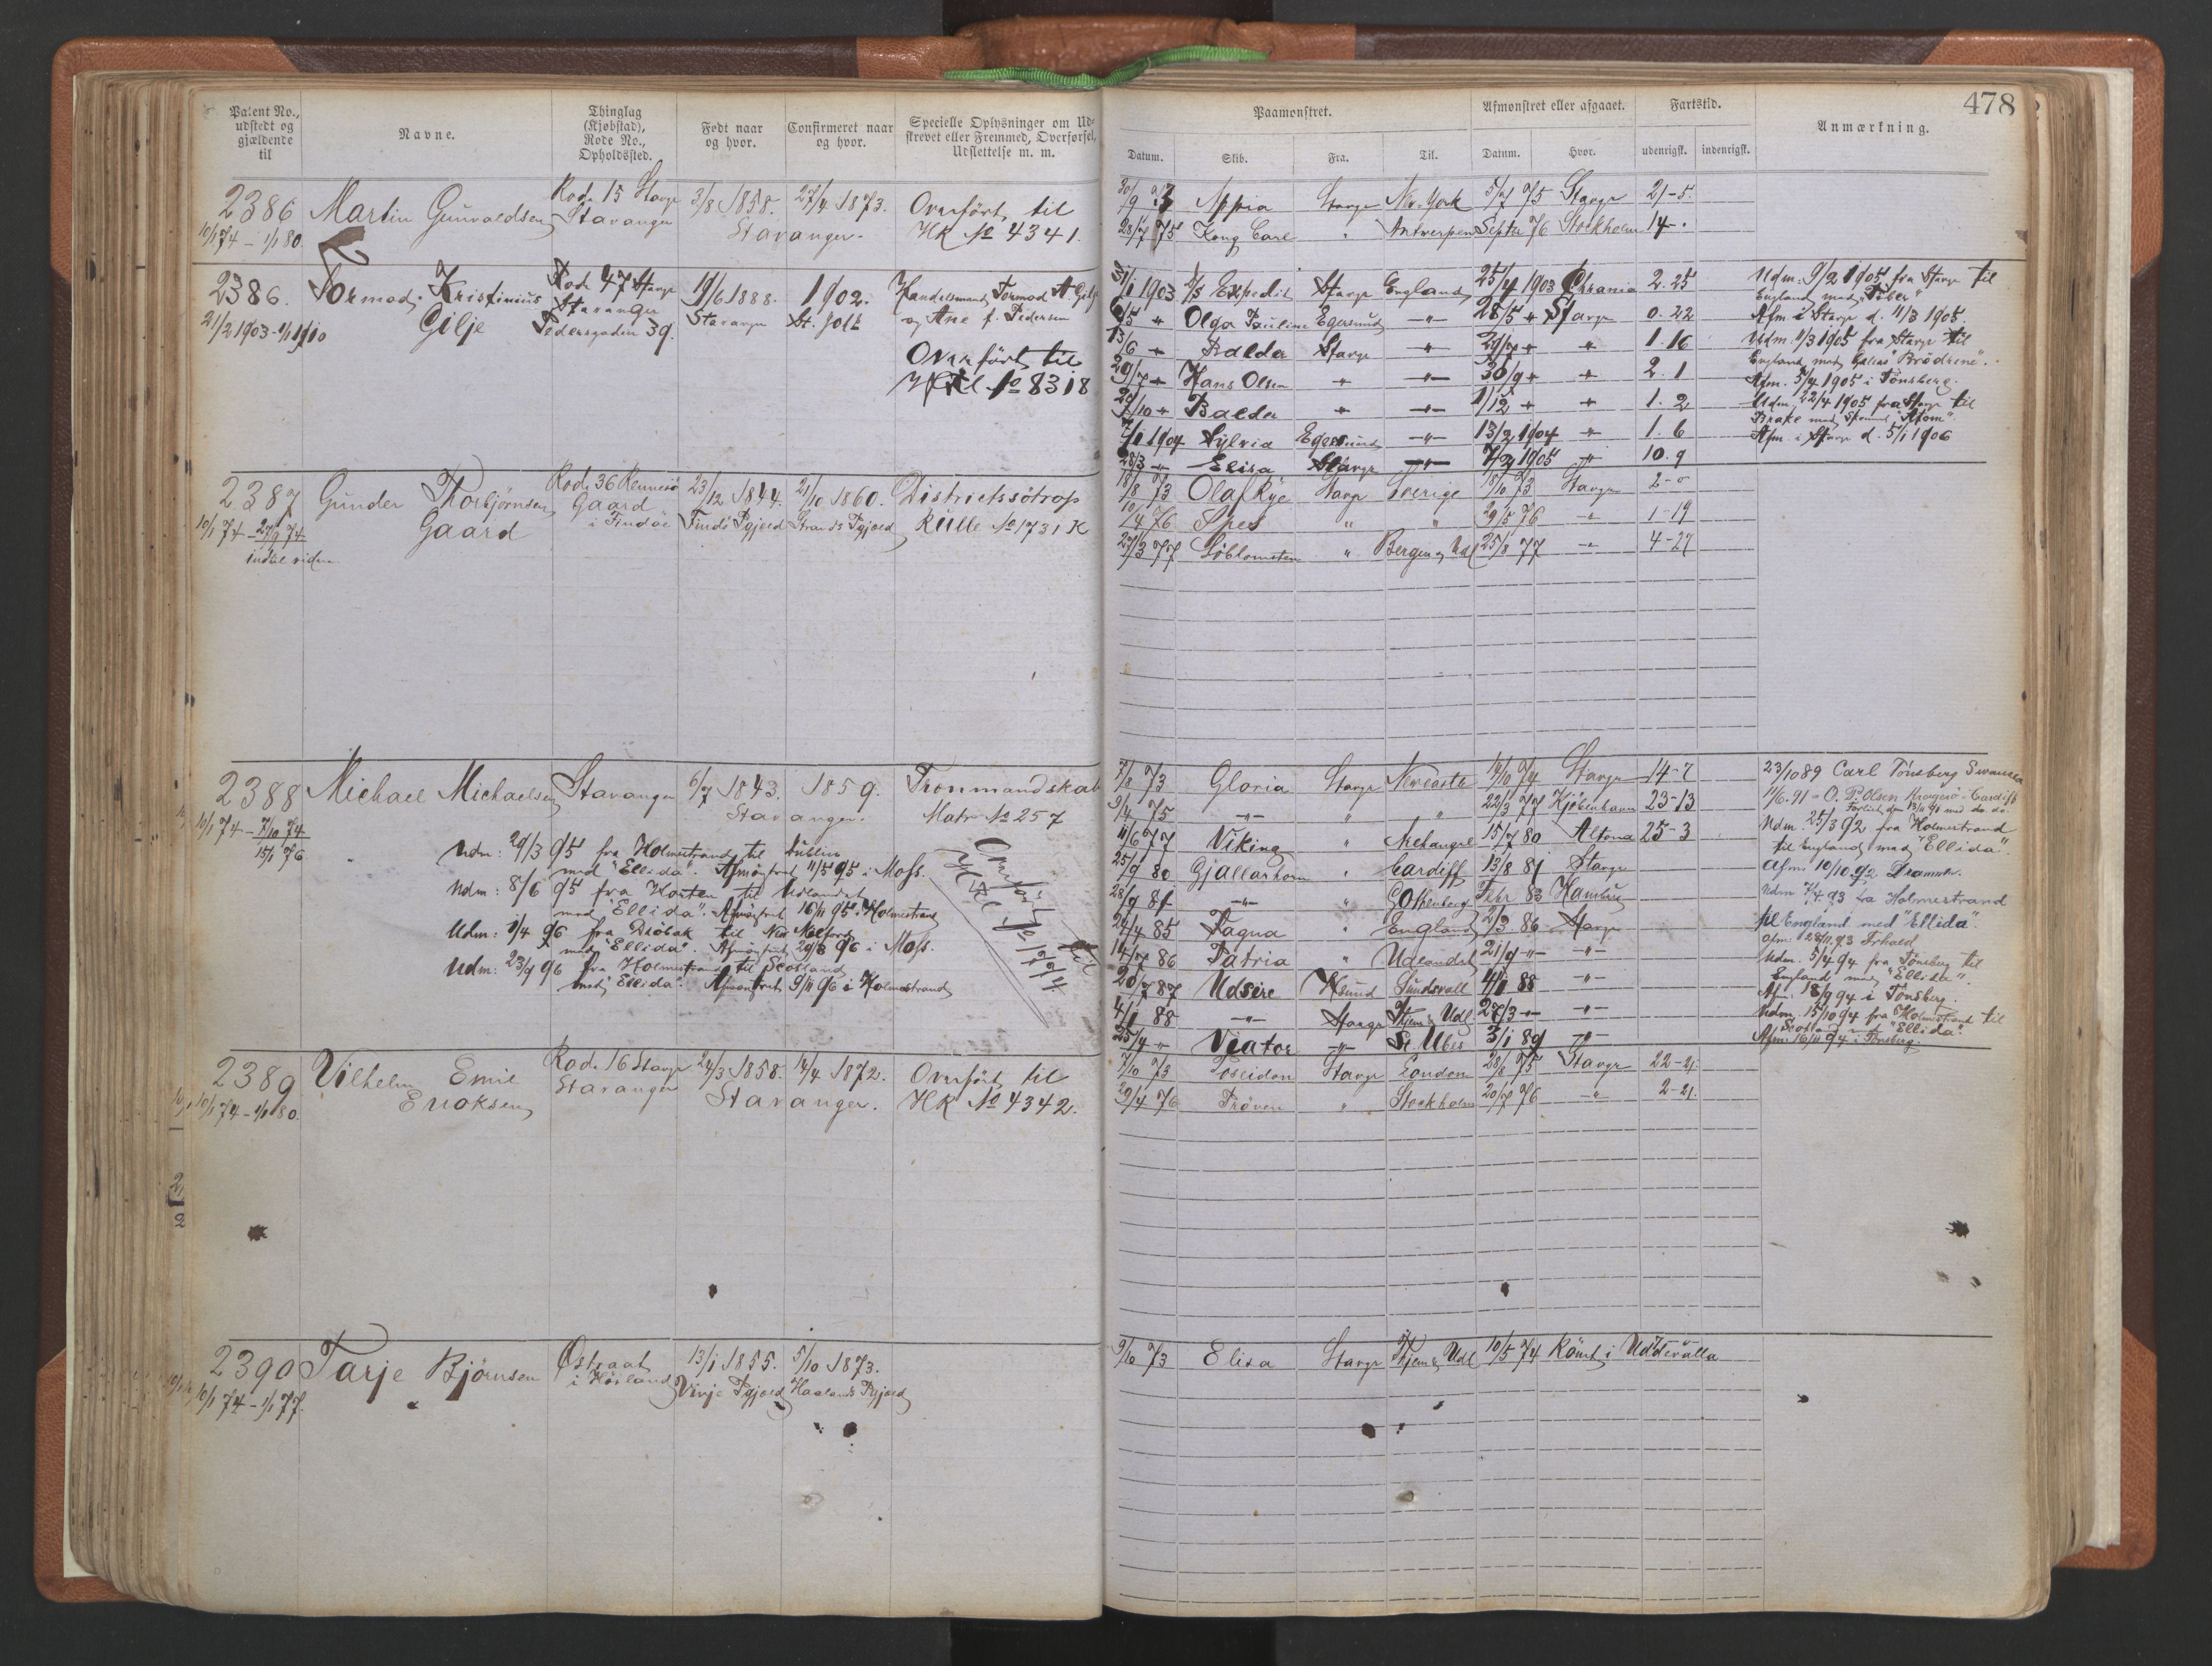 478
Patent No., udstedt og gjældende til
Navne.
Thinglag (Kjøbstad), Rode No., Opholdssted.
Født naar og hvor.
Confirmeret naar og hvor.
Specielle Oplysninger om Udskrevet eller Fremmed, Overførsel, Udslettelse m. m.
Paamønstret.
Afmønstret eller afgaaet.
Fartstid.
Anmærkning.
Datum. Skib. Fra. Til. Datum. Hvor. udenrigsk. indenrigsk.
2386 Martin Gunvaldsen Rode 15 Stavgr 3/8 1858. 27/4 1873. Overført til
10/1 74 – 1/1 80. Stavanger Stavanger. HK No 4341.
30/9 73 Appia Stavgr New York 5/7 75 Stavgr 21-5
28/7 75 Kong Carl " Antwerpen Septbr 76 Stockholm 14-.
2386. Tormod Kristinius Rode 47 Stavgr 19/6 1888. 1902. Handelsmand Tormod A Gilje
21/2 1903-1/1 1910 Gilje Stavanger Stavanger St. Joh og Ane f. Pedersen
Pedersgaden 39.
Overført til
No 8318
31/1 1903 Expedit Stavgr England 25/4 1903 Chrania 2. 25
6/5 " Olga Pauline Egersund -"- 28/5 " Stavgr 0. 22
13/6 " Balder Stavgr " 29/7 " " 1. 16
29/7 " Hans Olsen " -"- 30/9 " " 2. 1
29/10 " Balder " -"- 1/12 " " 1. 2
7/1 1904 Sylvia Egersund -"- 13/2 1904 " 1. 6
28/3 " Elisa Stavgr -"- 7/2 1905 " 10. 9
Udm. 9/2 1905 fra Stavgr til
England med "Tiber"
Afm i Stavgr d. 11/3 1905.
Udm. 11/3 1905 fra Stavgr til
England med Galeas "Brödrene".
Afm. 5/4 1905 i Tønsberg.
Udm 22/4 1905 fra Stavgr til
Brake med "Atom"
Afm. i Stavgr d. 5/1 1906
2387 Gunder Thorbjørnsen Rode 36 Rennesö 23/12 1844. 21/10 1860. Districtssötrop
10/1 74 – 27/9 74 Gaard Gaard i Findöe Findö Pgjeld Strands Pgjeld Rulle No 1731 K
indtil videre
18/8 73 Olaf Kye Stavgr Sverige 18/10 73 Stavgr 2-0
10/4 76 Spes " " 29/5 76 -"- 1-19
29/3 77 Söblomsten " Bergen & Udl 25/8 77 -"- 4-27
2388 Michael Michaelsen Stavanger 6/7 1843. 1859. Fremmandskab
10/1 74 – 7/10 74 Stavanger. Matr No 257
15/1 76
Udm: 29/3 95 fra Holmestrand til Dublin
med "Ellida". Afmønstret 11/5 95 i Moss.
Udm: 8/6 95 fra Horten til Udlandet
med "Ellida". Afmönstret 16/11 95 i Holmestrand
Udm: 1/4 96 fra Dröbak til New Milford
med "Ellida". Afmönstret 29/8 96 i Moss.
Udm: 23/9 96 fra Holmestrand til Scotland
med "Ellida". Afmönstret 9/11 96 i Holmestrand
Overført til
No 1774
7/8 73 Gloria Stavgr Newcastle 14/10 74 Stavgr 14-7
9/4 75 -"- " " 22/3 77 Kjöbenhavn 23-13
11/6 77 Viking " Archangel 15/7 80 Altona 25-3
25/9 80 Gjallarhorn " Cardiff 13/8 81 Stavgr
28/9 81 -"- " Gothenborg Febr 83 Hamburg
24/4 85 Fagna " England 2/3 86 Stavgr
14/7 86 Patria " Udlandet 21/9 -"- -"-
20/7 87 Udsire Hsund Sundsvall 4/1 88 -"-
4/1 88 -"- Stavgr Thjem & Udl. 27/3 -"- -"-
25/4 " Viator -"- St Ubes 3/1 89 -"-
23/10 89 Carl Tönsberg Swansea
11/6. 91 – O. P. Olsen Kragerö – Cardiff
Udm. 25/3 92 fra Holmestrand
til England med "Ellida".
Afm: 10/10 92. Drammen.
Udm 7/4. 93 fra Holmestrand
til England med "Ellida".
Afm. 28/11 93
Udm. 5/4 94 fra Tönsberg til
England med "Ellida".
Afm. 18/9 94 i Tönsberg.
Udm. 15/10 94 fra Holmestrand til
Scotland med "Ellida".
Afm: 16/11 94 i Tönsberg.
2389 Vilhelm Emil Rode 16 Stavgr 24/3 1858. 14/4 1872. Overført til
10/1 74 – 1/1 80. Ericksen Stavanger Stavanger. HK No 4342.
7/10 73 Poseidon Stavgr London 28/8 75 Stavgr 22-21.
29/4 76 Pröven " Stockholm 20/7 76 -"- 2-21.
2390 Tarje Bjørnsen Østraat 13/1 1855. 5/10 1873.
10/1 74 – 1/1 77. i Høiland Vinje Pgjeld Haalands Pgjeld
9/10 73 Elisa Stavgr Thjem & Udl 10/5 74 Römt i Uddevalla